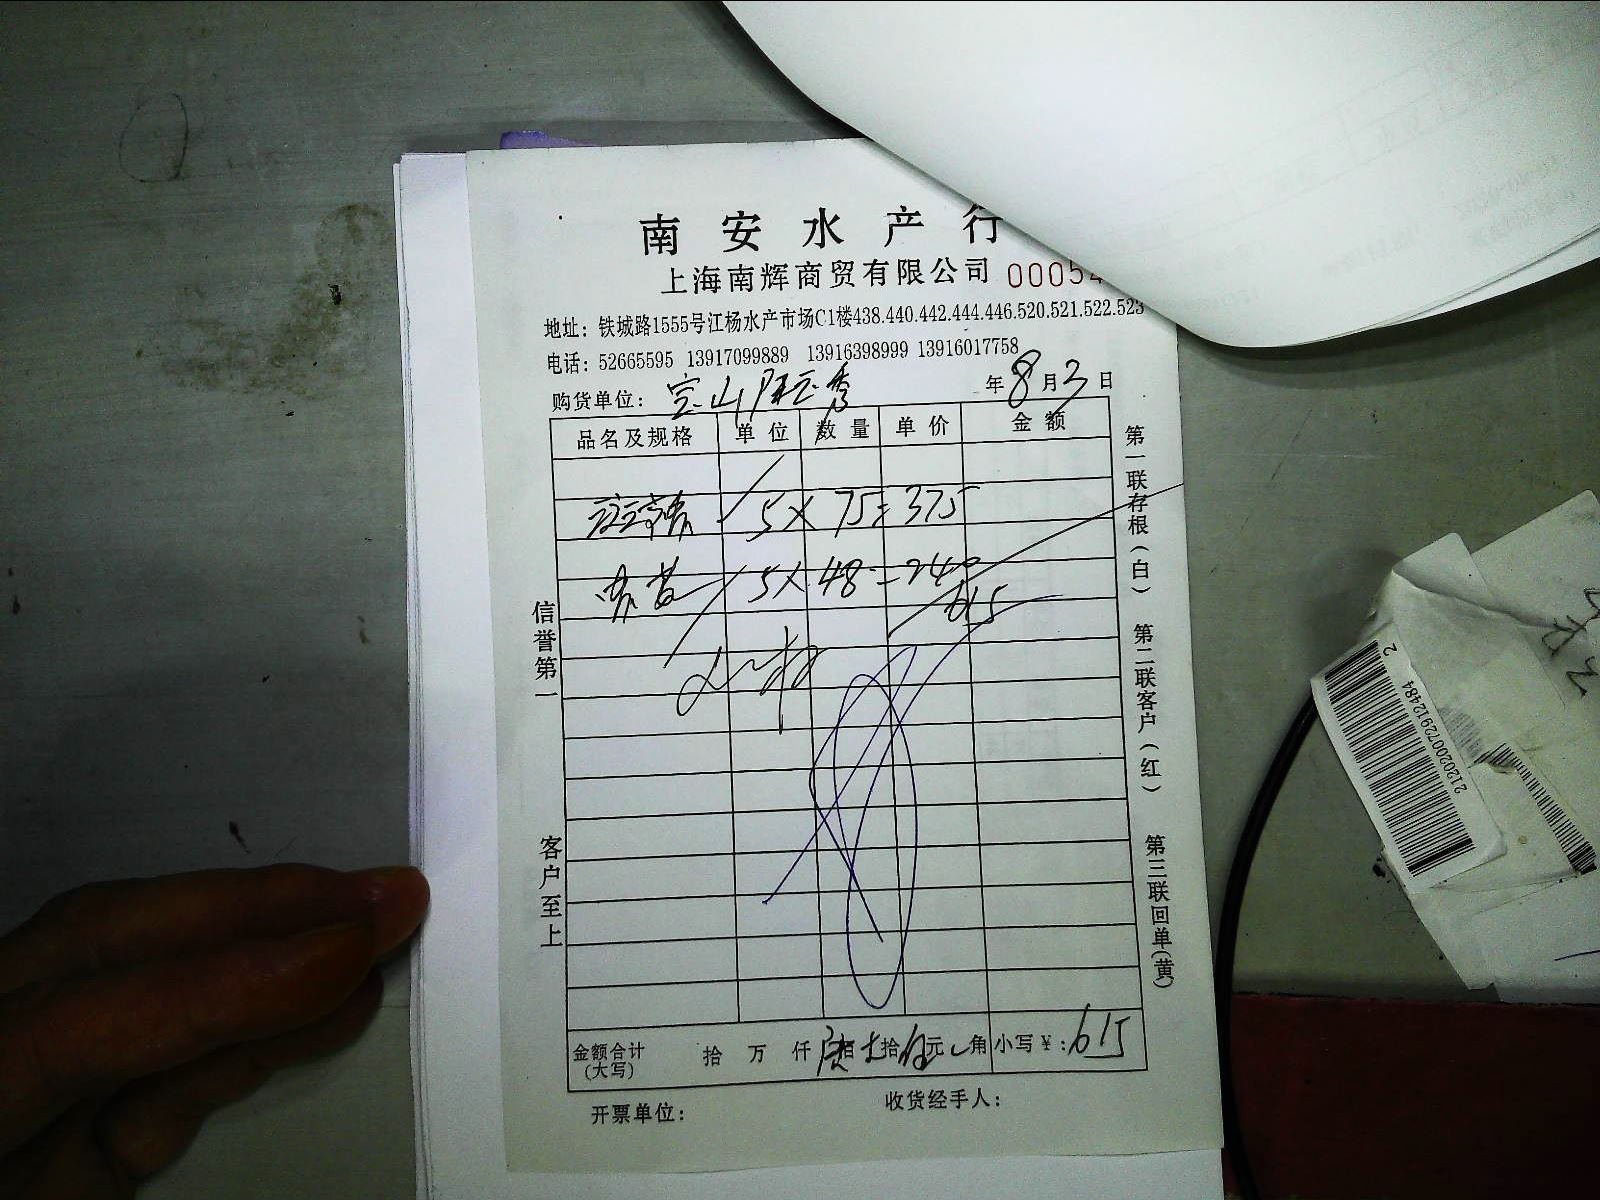 南安水产行
上海南辉商贸有限公司 00054
地址：铁城路1555号江杨水产市场C1楼438.440.442.444.446.520.521.522.523
电话：52665595 13917099889 13916398999 13916017758
购货单位：宝山 秀 年8月3日
品名及规格 单位 数量 单价 金额
5×75=375
5×48=240
615
金额合计（大写） 拾 万 仟 陆佰 拾 伍元 角 小写￥：615
开票单位： 收货经手人：
信誉第一 客户至上
第一联存根（白） 第二联客户（红） 第三联回单（黄）
2120200072912484
2